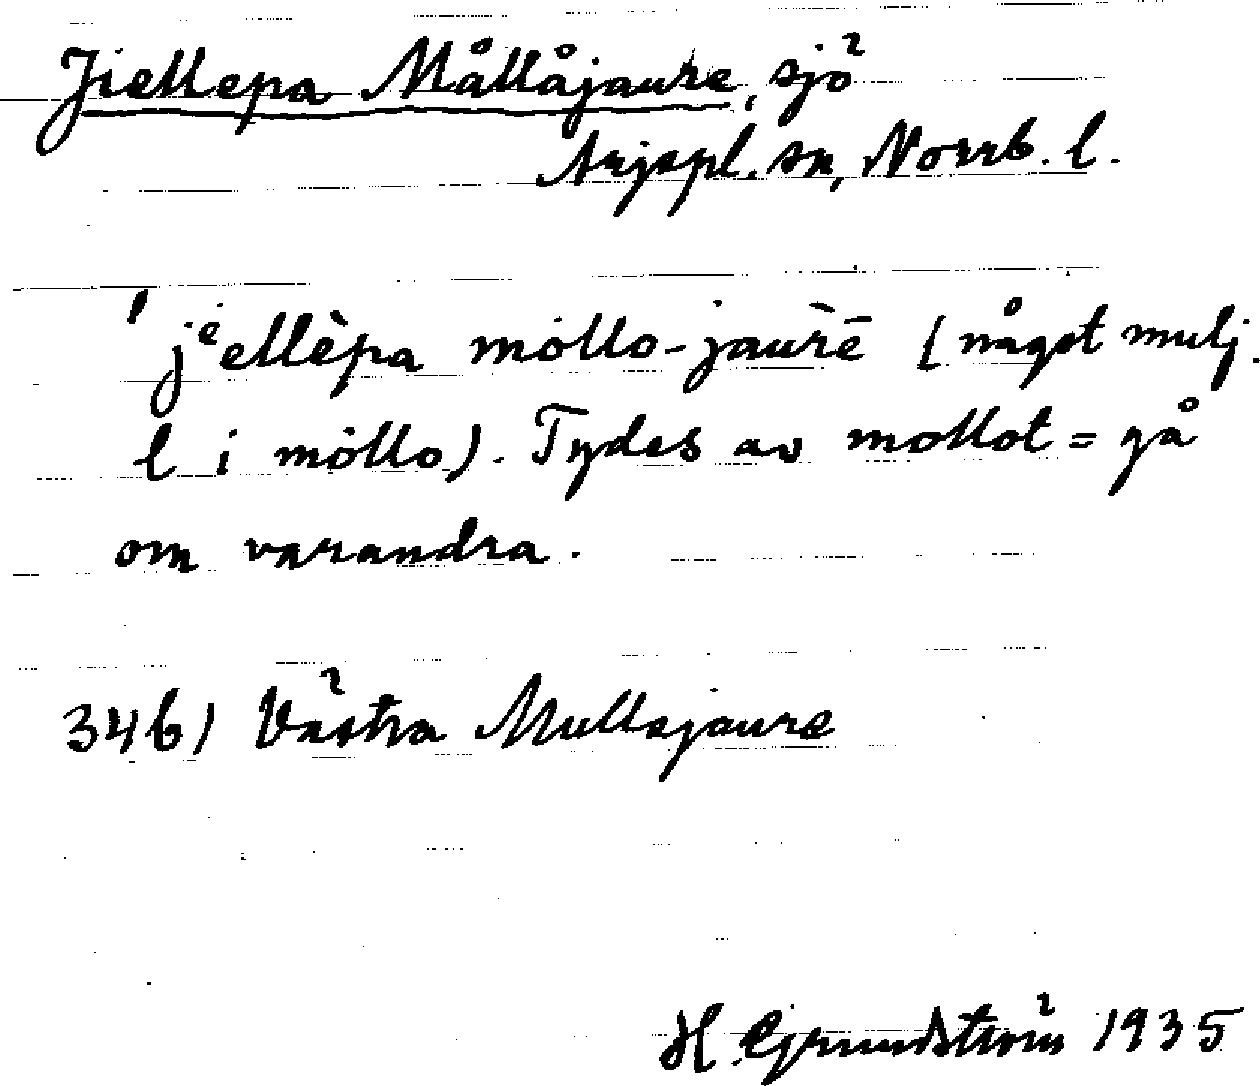 Jiellepa Mållåjaure, sjö
Arjepl. sn, Norrb. l.
'jᵉellèpa mȯllo-jaùrē (något mulj.
l i mȯllo). Tydes av mollot = gå
om varandra.
346) Västra Mullejaure
H. Grundström 1935